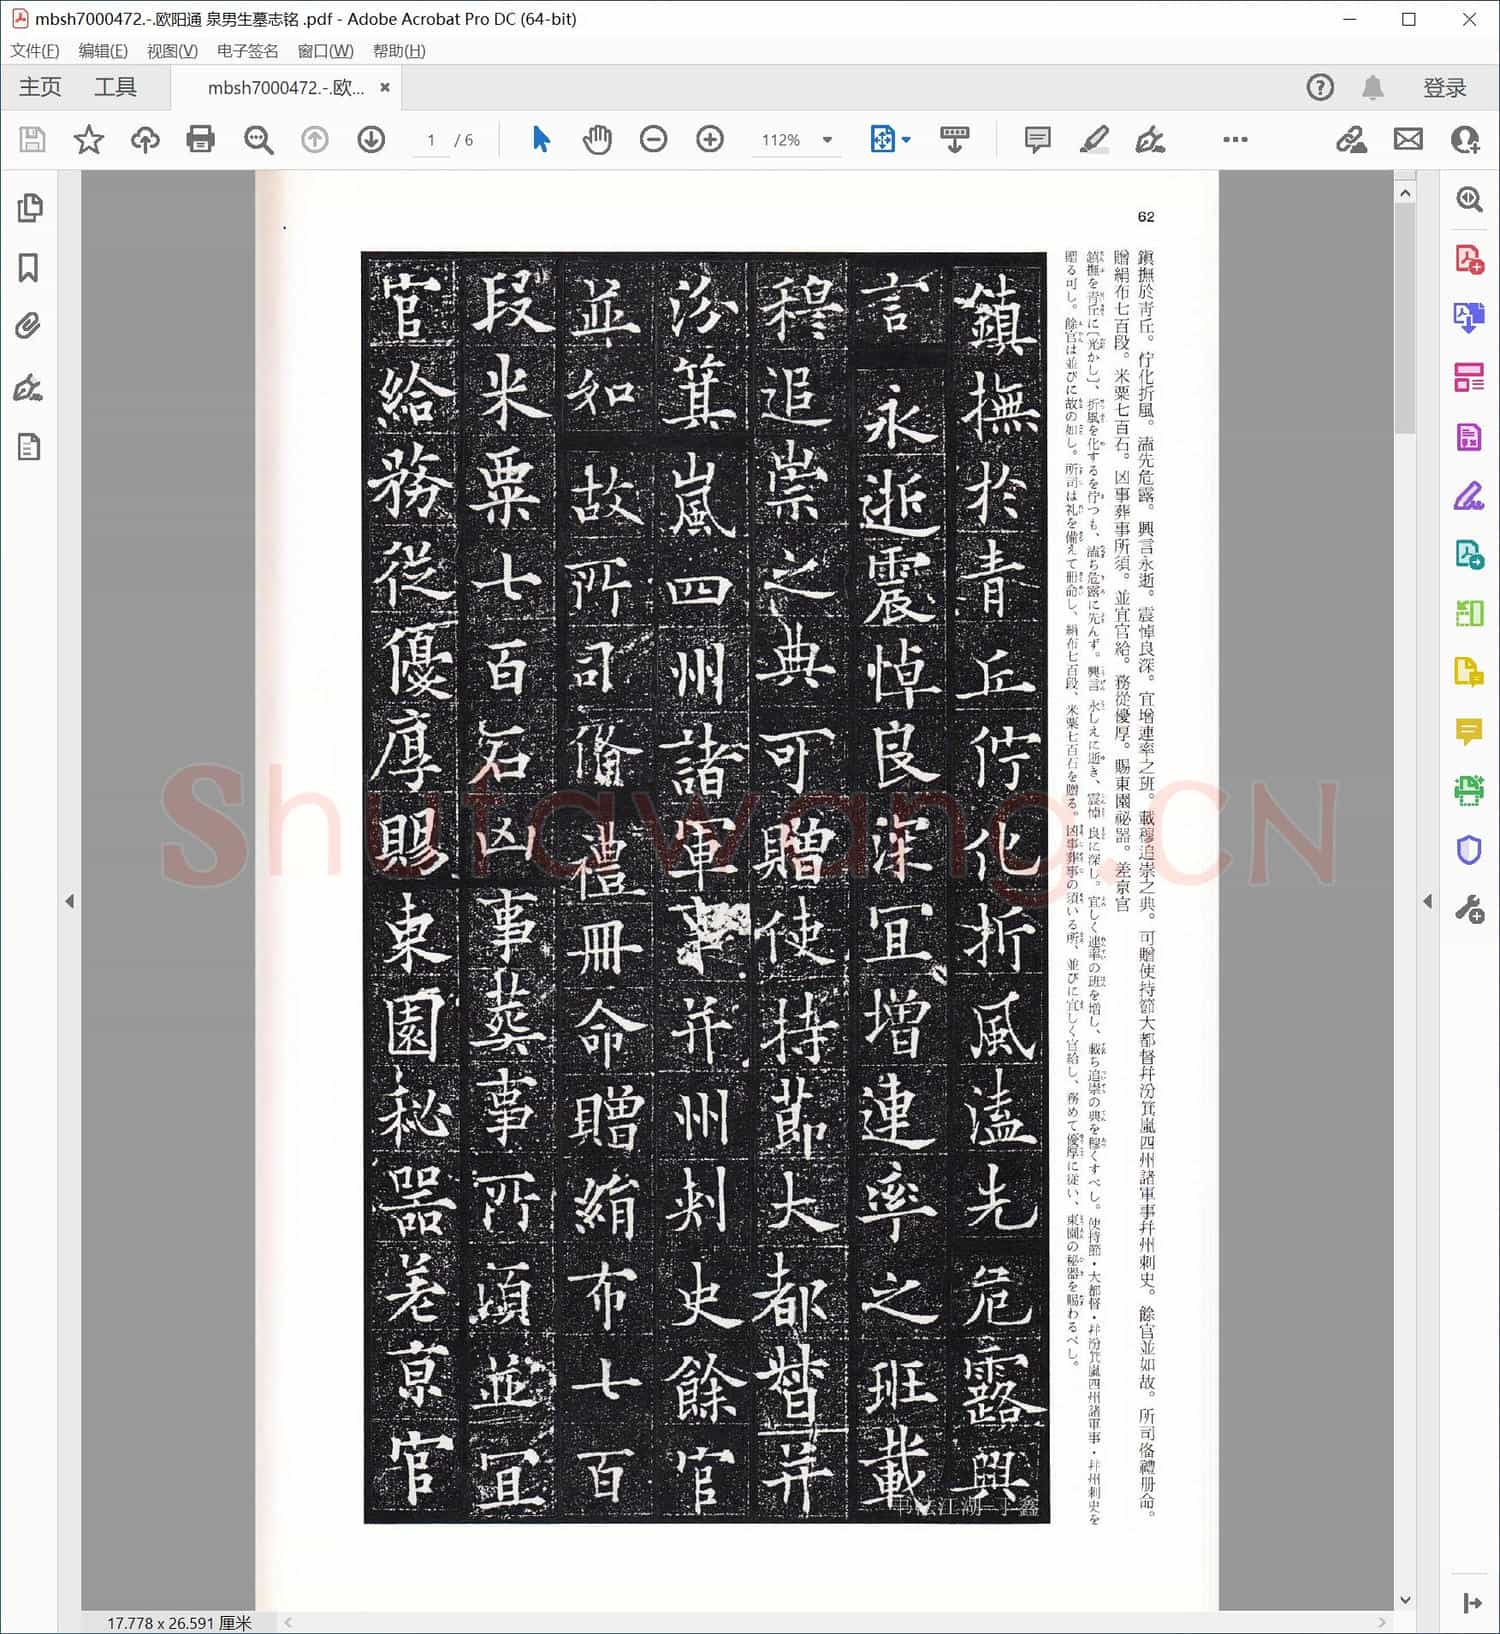 mbsh7000472.-.欧阳通 泉男生墓志铭 .pdf - Adobe Acrobat Pro DC (64-bit)
文件(F) 编辑(E) 视图(V) 电子签名 窗口(W) 帮助(H)
主页 工具 mbsh7000472.-.欧... 登录
1 / 6 112%
62
鎭撫於靑丘。佇化折風。溘先危露。興言永逝。震悼良深。宜增連率之班。載穆追崇之典。可贈使持節大都督幷汾箕嵐四州諸軍事幷州刺史。餘官並如故。所司俻禮册命。
贈絹布七百段。米粟七百石。凶事葬事所須。並宜官給。務從優厚。賜東園祕器。差京官
鎭撫を青丘に〔光かし〕、折風を化するを佇つも、溘ち危露に先んず。興言 永しえに逝き、震悼 良に深し。宜しく連率の班を増し、載ち追崇の典を穆くすべし。使持節・大都督・幷汾箕嵐四州諸軍事・幷州刺史を
贈る可し。餘官は並びに故の如し。所司は礼を備えて冊命し、絹布七百段、米粟七百石を贈る。凶事葬事の須いる所、並びに宜しく官給し、務めて優厚に従い、東園の秘器を賜わるべし。
鎮撫於青丘佇化折風溘先危露興
言永逝震悼良深宜增連率之班載
穆追崇之典可贈使持節大都督并
汾箕嵐四州諸軍事并州刾史餘官
並如故所司俻禮冊命贈絹布七百
段米粟七百石凶事葬事所須並宜
官給務從優厚賜東園秘器差京官
Shufawang.CN
书法江湖-丁鑫
17.778 x 26.591 厘米